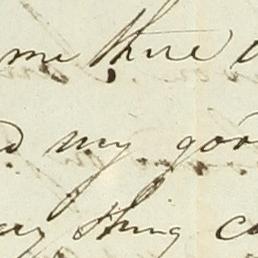 me there
my goo
thing c